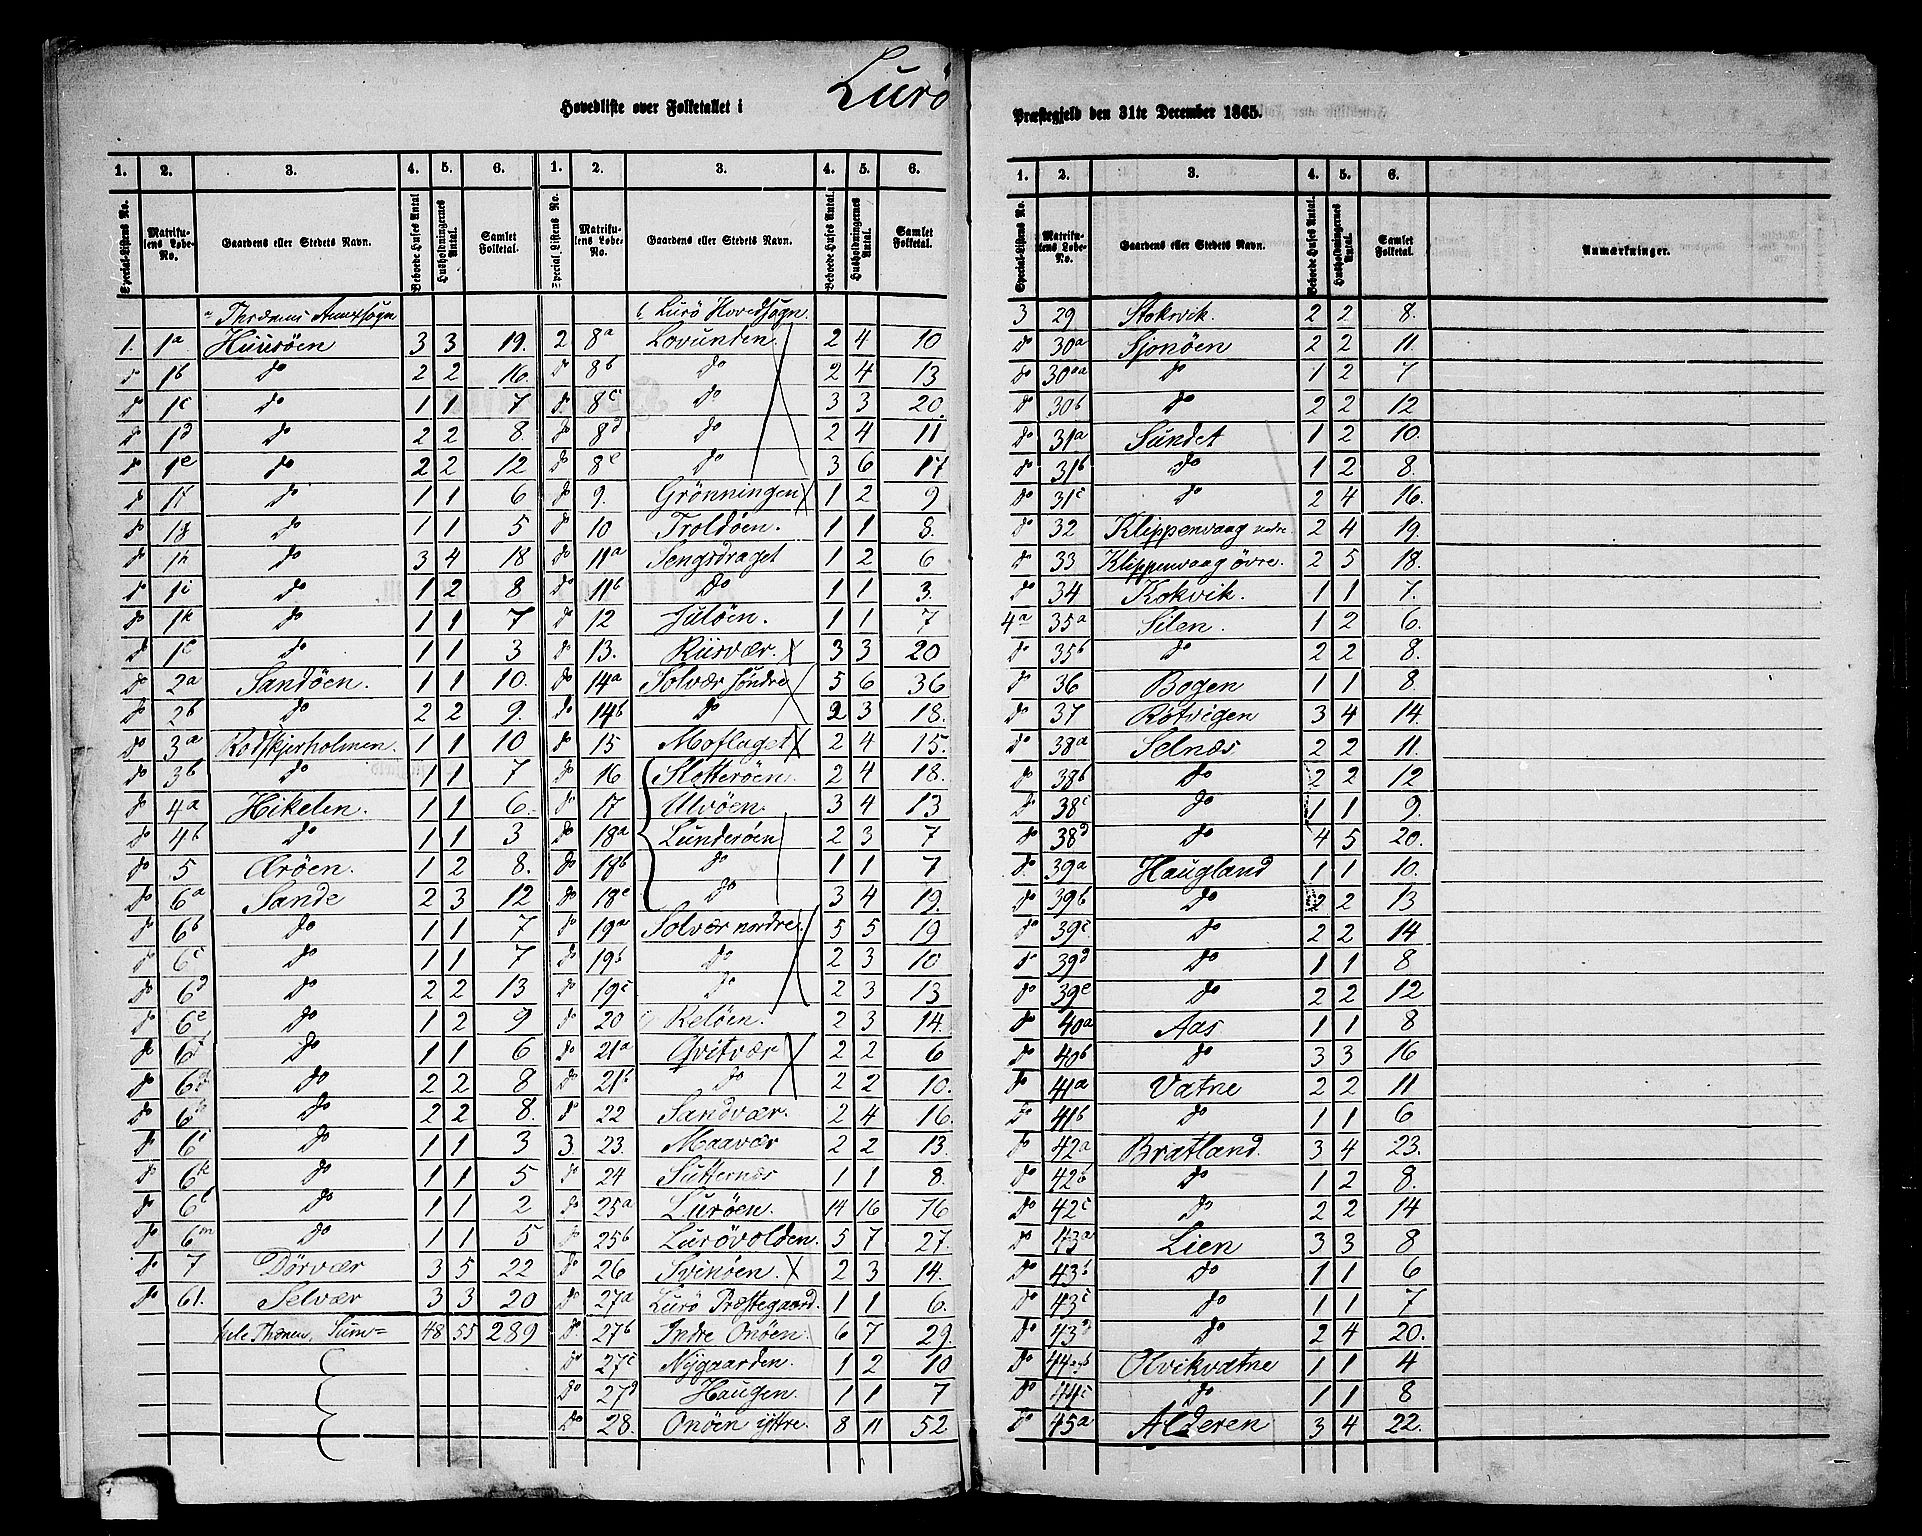 Hovedliste over Folketallet i Lurö Præstegjeld den 31te December 1865.
1. 2. 3. 4. 5. 6. 1. 2. 3. 4. 5. 6.
Special-Listens No. Matrikulens Løbe-No. Gaardens eller Stedets Navn. Beboede Huses Antal Husholdningernes Antal. Samlet Folketal. Special Listens No. Matrikulens Løbe-No. Gaardens eller Stedets Navn. Beboede Huses Antal. Husholdningernes Antal. Samlet Folketal.
Thrænens Annexsogn Lurö Hovedsogn
1. 1a Huusöen 3 3 19. 2 8a Lovunden. 2 4 10
do 1b do 2 2 16. do 8b do 2 4 13
do 1c do 1 1 7 do 8c do 3 3 20.
do 1d do 2 2 8. do 8d do 2 4 11
do 1e do 2 2 12 do 8e do 3 6 17
do 1f do 1 1 6 do 9. Grönningen 1 2 9
do 1g do 1 1 5 do 10 Troldöen. 1 1 8.
do 1h do 3 4 18 do 11a Sengsdraget 1 2 6
do 1i do 1 2 8 do 11b do 1 1 3.
do 1k do 1 1 7 do 12 Julöen. 1 1 7
do 1l do 1 1 3 do 13. Riisvær. 3 3 20
do 2a Sandöen. 1 1 10. do 14a Solvær söndre 5 6 36
do 2b do 2 2 9. do 14b do 2 3 18.
do 3a Rodskjerholmen. 1 1 10 do 15 Moflaget 2 4 15.
do 3b do 1 1 7 do 16 Slotteröen. 2 4 18.
do 4a Hikelen. 1 1 6. do 17 Alvöen. 3 4 13
do 4b do 1 1 3 do 18a Lunderöen 2 3 7
do 5 Æröen. 1 2 8. do 18b do 1 1 7
do 6a Sande 2 3 12 do 18c do 3 4 19.
do 6b do 1 1 7 do 19a Solvær nordre. 5 5 19
do 6c do 1 1 7 do 19b do 2 3 10
do 6d do 2 2 13 do 19c do 2 3 13
do 6e do 1 2 9 do 20 Kelöen. 2 3 14.
do 6f do 1 1 6 do 21a Qvitvær 2 2 6
do 6g do 2 2 8 do 21b do 2 2 10.
do 6h do 2 2 8. do 22 Sandvær. 2 4 16.
do 6i do 1 1 3 3. 23. Maavær 2 2 13.
do 6k do 1 1 5 do 24 Sütternæs 1 1 8.
do 6l do 1 1 2 do 25a Luröen. 14 16 76
do 6m do 1 1 5 do 25b Lurövolden. 5 7 27.
do 7 Dörvær 3 5 22 do 26 Svinöen. 2 3 14.
do 61. Selvær 3 3 20 do 27a Lurö Præstegaard. 1 1 6.
hele Thrænen, Sum= 48 55 289 do 27b Indre Onöen. 6 7 29.
do 27c Nygaarden. 1 2 10
do 27d Haugen. 1 1 7
do 28. Onöen ÿttre. 8 11 52.
1. 2. 3. 4. 5. 6.
Special-Listens No. Matrikulens Løbe-No. Gaardens eller Stedets Navn. Beboede Huses Antal. Husholdningernes Antal. Samlet Folketal. Anmærkninger.
3 29 Stokvik. 2 2 8.
do 30a Sjonöen 2 2 11
do 30aa do 1 2 7
do 30b do 2 2 12
do 31a Sundet 1 2 10.
do 31b do 1 2 8.
do 31c do 2 4 16.
do 32 Klippenvaag nedre. 2 4 19.
do 33 Klippenvaag övre. 2 5 18.
do 34 Kokvik. 1 1 7.
4a 35a Silen. 1 2 6.
do 35b do 2 2 8.
do 36 Bogen 1 1 8.
do 37 Rötvigen 3 4 14.
do 38a Selnæs 2 2 11.
do 38b do 2 2 12
do 38c do 1 1 9.
do 38d do 4 5 20.
do 39a Haugland 1 1 10.
do 39b do 2 2 13
do 39c do 2 2 14
do 39d do 1 1 8
do 39e do 2 2 12
do 40a Aas 1 1 8
do 40b do 3 3 16
do 41a Vatne 2 2 11
do 41b do 1 1 6
do 42a Bratland. 3 4 23.
do 42b do 1 2 8.
do 42c do 2 2 14
do 43a Lien 3 3 8
do 43b do 1 1 6
do 43c do 1 1 7
do 43d do 2 4 20.
do 44a,b Olvikvatne 1 1 4
do 44c do 1 1 8
do 45a Alderen 3 4 22.